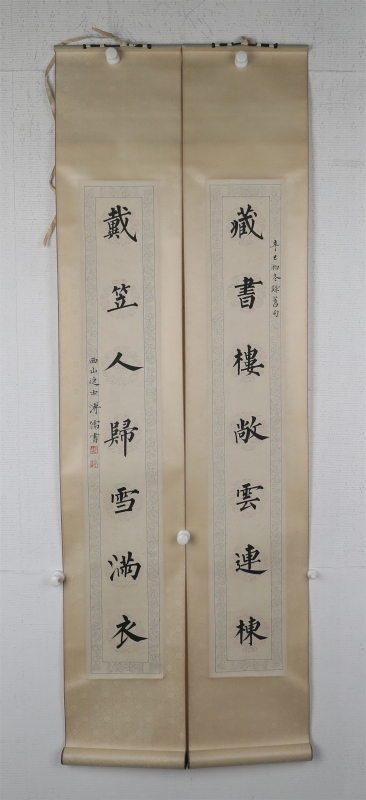 藏書樓敞雲連棟
辛亥初冬録舊句
戴笠人歸雪滿衣
西山逸士溥儒書